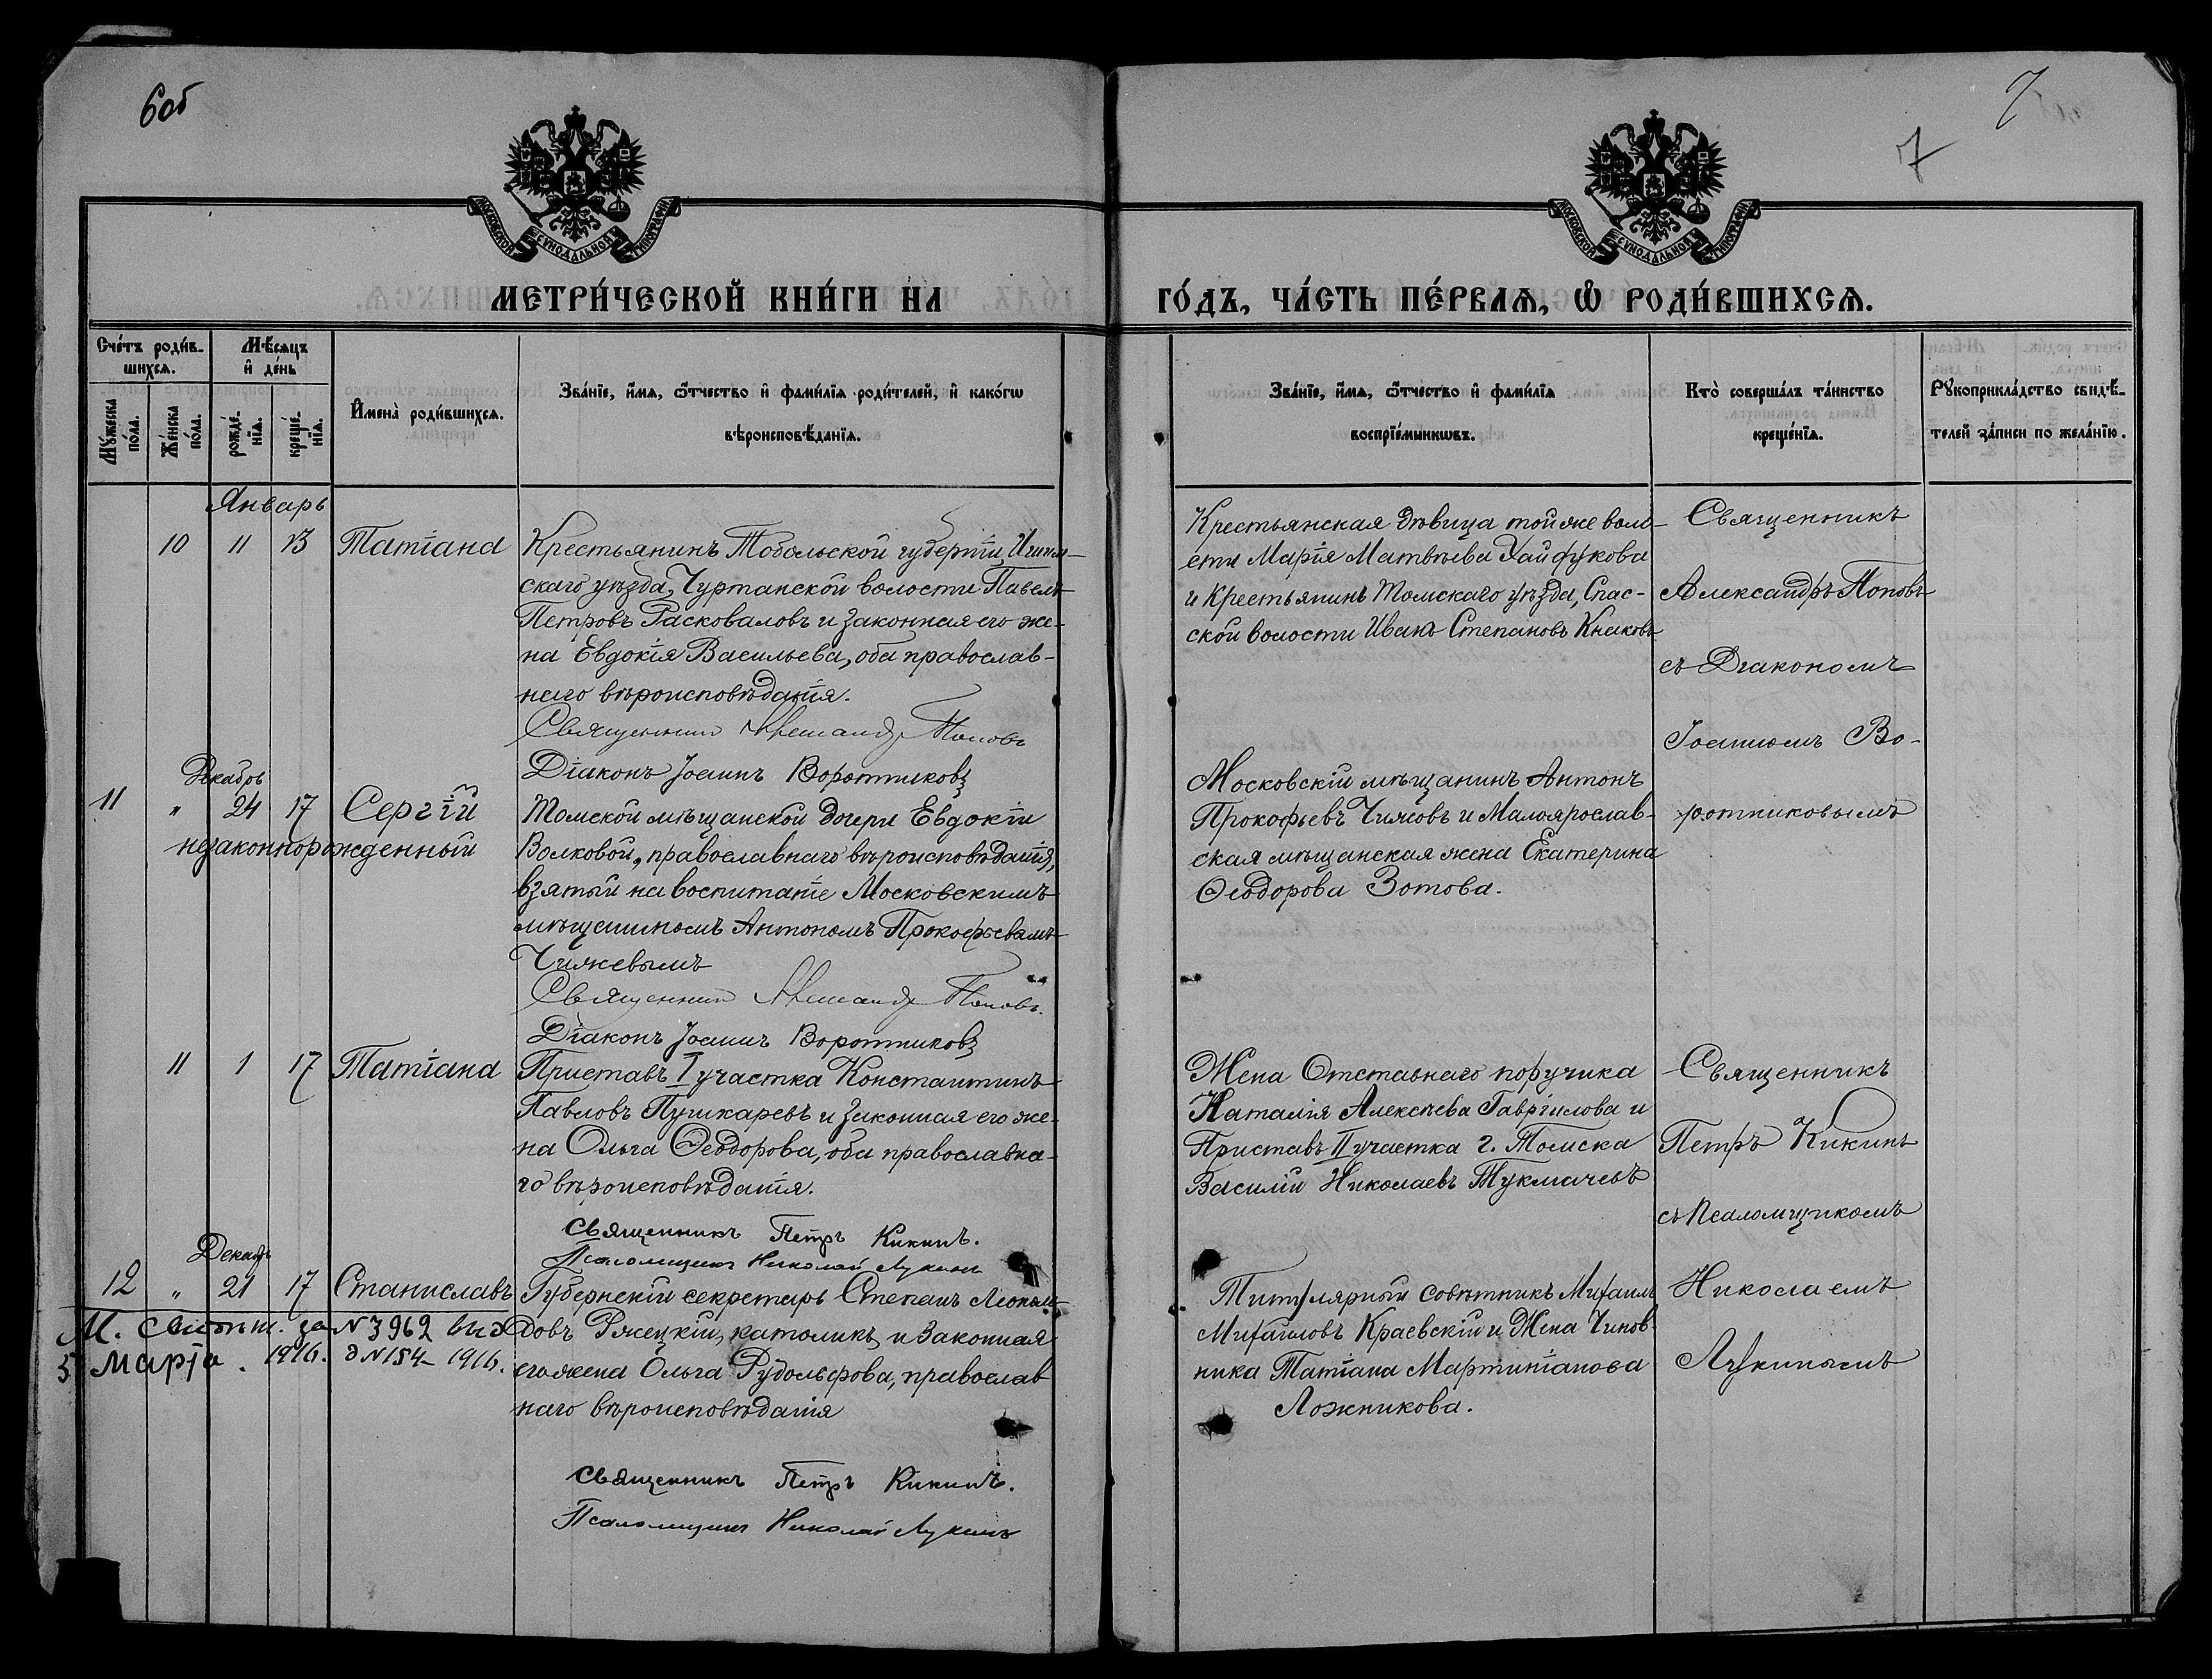 6 об
7
7
МОСКОВСКОЙ СѴНОДАЛЬНОЙ ТИПОГРАФІИ
МОСКОВСКОЙ СѴНОДАЛЬНОЙ ТИПОГРАФІИ
МЕТРИ́ЧЕСКОЙ КНИ́ГИ НА ГО́ДЪ, ЧА́СТЬ ПЕ́РВАѦ, Ѡ РОДИ́ВШИХСѦ.
Сче́тъ роди́в-
шихсѧ.
Мꙋ́жеска
по́ла.
Же́нска
по́ла.
Мѣ́сѧцъ
и҆ де́нь
рожде́-
нїѧ.
креще́-
нїѧ.
И҆мена̀ роди́вшихсѧ.
Зва́нїе, и҆́мѧ, ѻ҆́тчество и҆ фами́лїѧ роди́телей, и҆ како́гѡ
вѣроисповѣ́данїѧ.
Зва́нїе, и҆́мѧ, ѻ҆́тчество и҆ фами́лїѧ
воспрїе́мникѡвъ.
Кто̀ соверша́лъ та́инство
креще́нїѧ.
Рꙋкоприкла́дство свидѣ́-
телей за́писи по жела́нїю.
Январь
10 11 13 Татіана
Крестьянинъ Тобольской губерніи, Ишим-
скаго уѣзда, Чуртанской волости Павелъ
Петровъ Расковаловъ и законная его же-
на Евдокія Васильева, оба православ-
наго вѣроисповѣданія.
Священникъ Александръ Поповъ
Діаконъ Іоаннъ Воротниковъ
Крестьянская дѣвица той же воло-
сти Марія Матвѣева Хайфукова
и Крестьянинъ Томскаго уѣзда, Спас-
ской волости Иванъ Степановъ
Священникъ
Александръ Поповъ
съ Діакономъ
Іоанномъ Во-
ротниковымъ
Декабрь
11 " 24 17 Сергій
незаконнорожденный
Томской мѣщанской дочери Евдокіи
Волковой, православнаго вѣроисповѣданія,
взятый на воспитаніе Московскимъ
мѣщаниномъ Антономъ Прокофьевымъ
Чижевымъ
Священникъ Александръ Поповъ.
Діаконъ Іоаннъ Воротниковъ
Московскій мѣщанинъ Антонъ
Прокофьевъ Чижовъ и Малоярослав-
ская мѣщанская жена Екатерина
Ѳеодорова Зотова.
11 1 17 Татіана
Приставъ I участка Константинъ
Павловъ Пушкаревъ и законная его же-
на Ольга Ѳеодорова, оба православна-
го вѣроисповѣданія.
Священникъ Петръ Кикинъ.
Псаломщикъ Николай Лукинъ
Жена Отставнаго поручика
Наталія Алексѣева Гаврилова и
Приставъ II участка г. Томска
Василій Николаевъ Тукмачевъ
Священникъ
Петръ Кикинъ
съ Псаломщикомъ
Николаемъ
Лукинымъ
Декабрь
12 " 21 17 Станиславъ
М. Свидѣт. за № 3962 выд
5 марта. 1916. д № 154 - 1916.
Губернскій секретарь Степанъ Леополь-
довъ Ржецкій, католикъ, и законная
его жена Ольга Рудольфова, православ
наго вѣроисповѣданія
Священникъ Петръ Кикинъ.
Псаломщикъ Николай Лукинъ
Титулярный совѣтникъ Михаилъ
Михаиловъ Краевскій и Жена Чинов-
ника Татіана Мартиніанова
Ложникова.